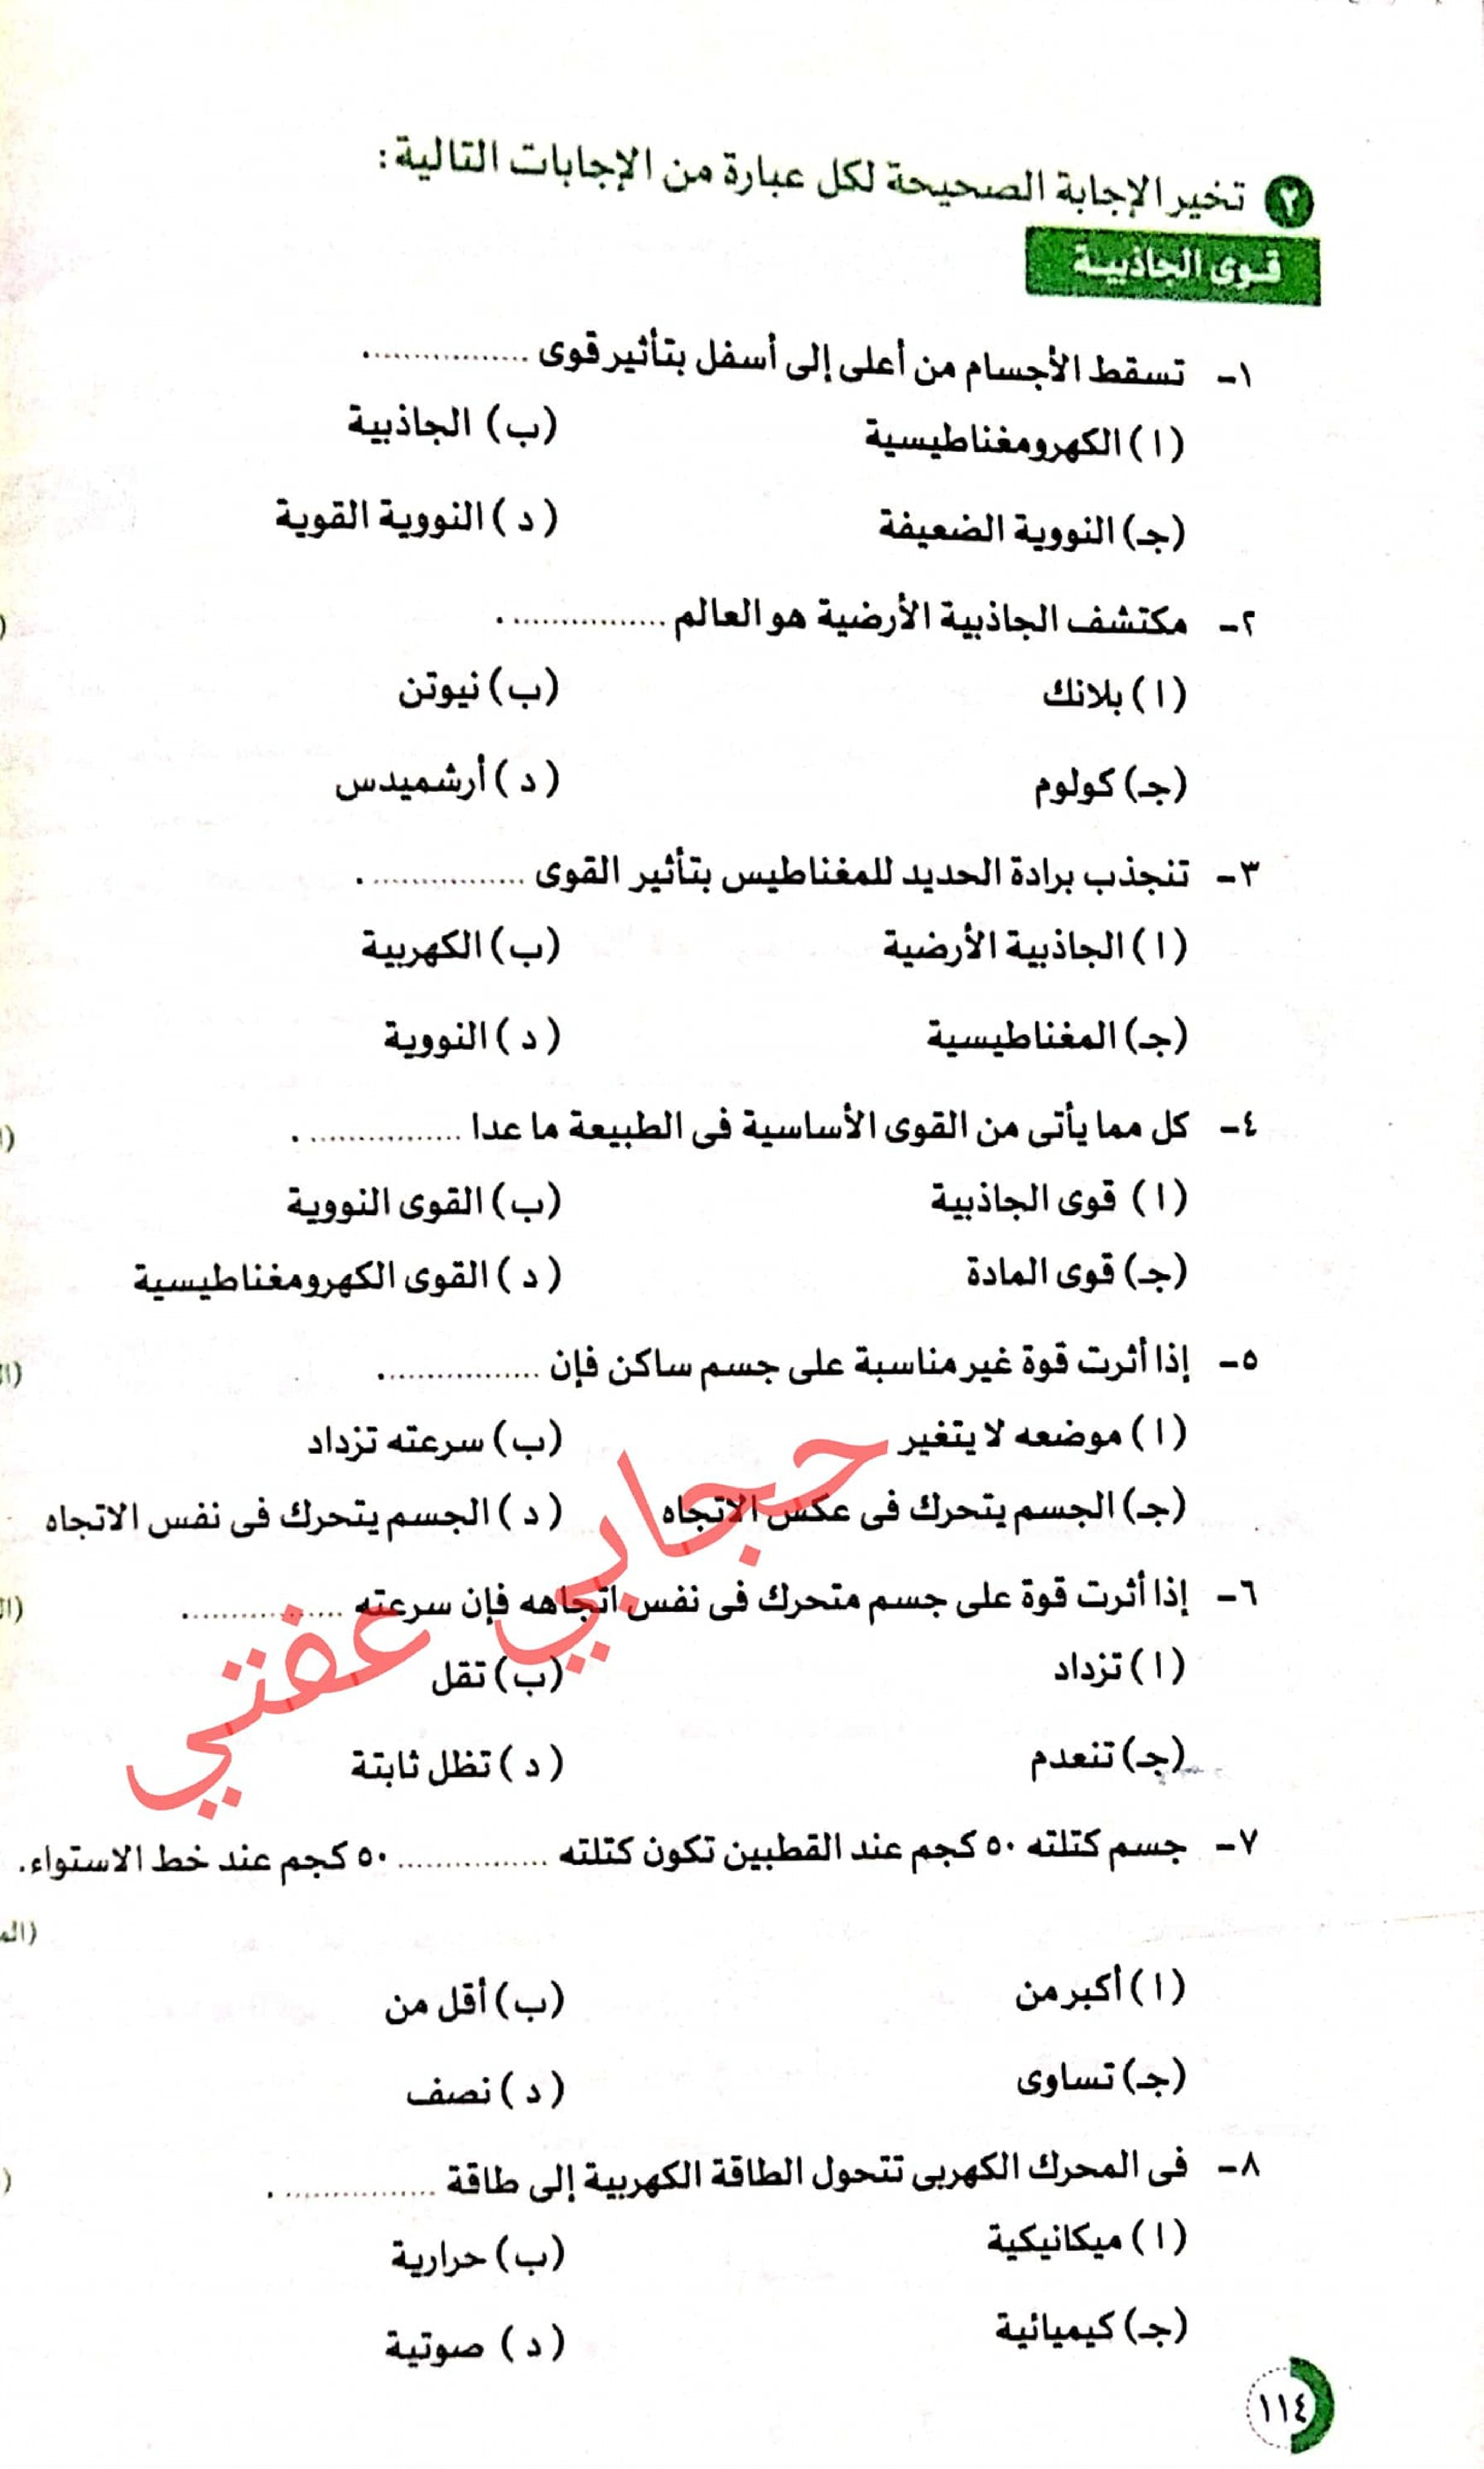 ٢ تخير الإجابة الصحيحة لكل عبارة من الإجابات التالية:
قوى الجاذبية
١- تسقط الأجسام من أعلى إلى أسفل بتأثير قوى ................
(ا) الكهرومغناطيسية (ب) الجاذبية
(جـ) النووية الضعيفة (د) النووية القوية
٢- مكتشف الجاذبية الأرضية هو العالم ................ .
(ا) بلانك (ب) نيوتن
(جـ) كولوم (د) أرشميدس
٣- تنجذب برادة الحديد للمغناطيس بتأثير القوى ................ .
(ا) الجاذبية الأرضية (ب) الكهربية
(جـ) المغناطيسية (د) النووية
٤- كل مما يأتى من القوى الأساسية فى الطبيعة ما عدا ................ .
(ا) قوى الجاذبية (ب) القوى النووية
(جـ) قوى المادة (د) القوى الكهرومغناطيسية
٥- إذا أثرت قوة غير مناسبة على جسم ساكن فإن ................
(ا) موضعه لا يتغير (ب) سرعته تزداد
(جـ) الجسم يتحرك فى عكس الاتجاه (د) الجسم يتحرك فى نفس الاتجاه
٦- إذا أثرت قوة على جسم متحرك فى نفس اتجاهه فإن سرعته ................
(ا) تزداد (ب) تقل
(جـ) تنعدم (د) تظل ثابتة
حجابي عفتي
٧- جسم كتلته ٥٠ كجم عند القطبين تكون كتلته ............... ٥٠ كجم عند خط الاستواء.
(ا) أكبر من (ب) أقل من
(جـ) تساوى (د) نصف
٨- فى المحرك الكهربى تتحول الطاقة الكهربية إلى طاقة ................ .
(ا) ميكانيكية (ب) حرارية
(جـ) كيميائية (د) صوتية
١١٤